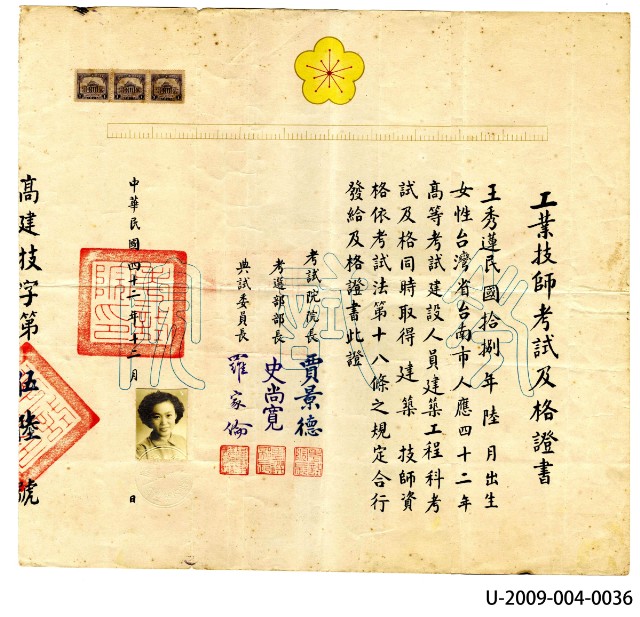 工業技師考試及格證書
王秀蓮民國拾捌年陸月出生
女性台灣省台南市人應四十二年
高等考試建設人員建築工程科考
試及格同時取得建築技師資
格依考試法第十八條之規定合行
發給及格證書此證
考試院院長 賈景德
考選部部長 史尚寬
典試委員長 羅家倫
中華民國四十二年十二月 日
高建技字第伍陸號
U-2009-004-0036